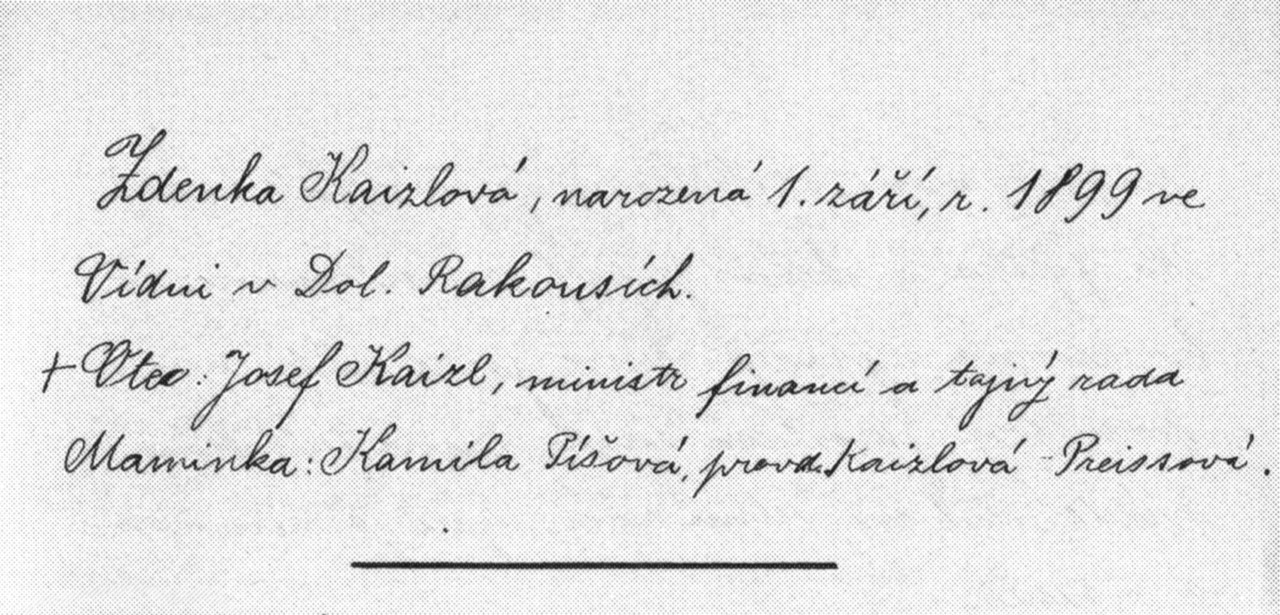 Zdenka Kaizlová, narozená 1. září, r. 1899 ve
Vídni v Dol. Rakousích.
+ Otec: Josef Kaizl, ministr financí a tajný rada
Maminka: Kamila Píšová, provd. Kaizlová - Preissová.